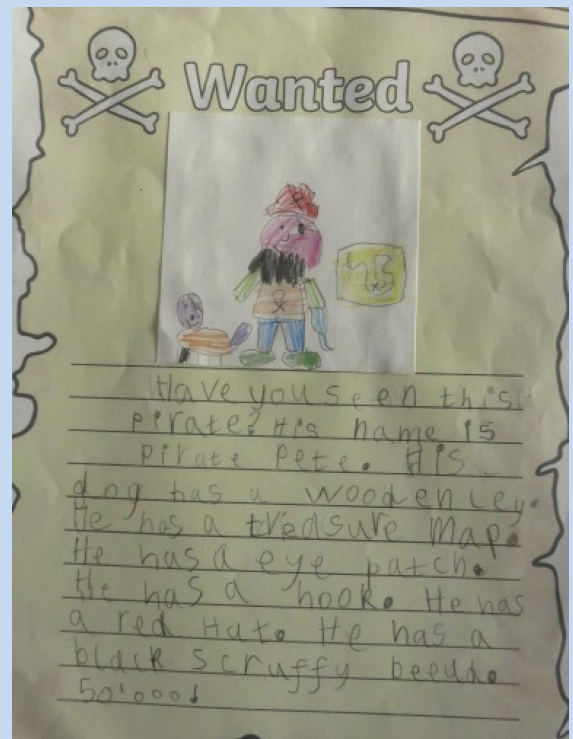 Wanted
Have you seen this
pirate? His name is
pirate Pete. His
dog has a wooden leg.
He has a treasure map.
He has a eye patch.
He has a hook. He has
a red Hat. He has a
black scruffy
50'000!